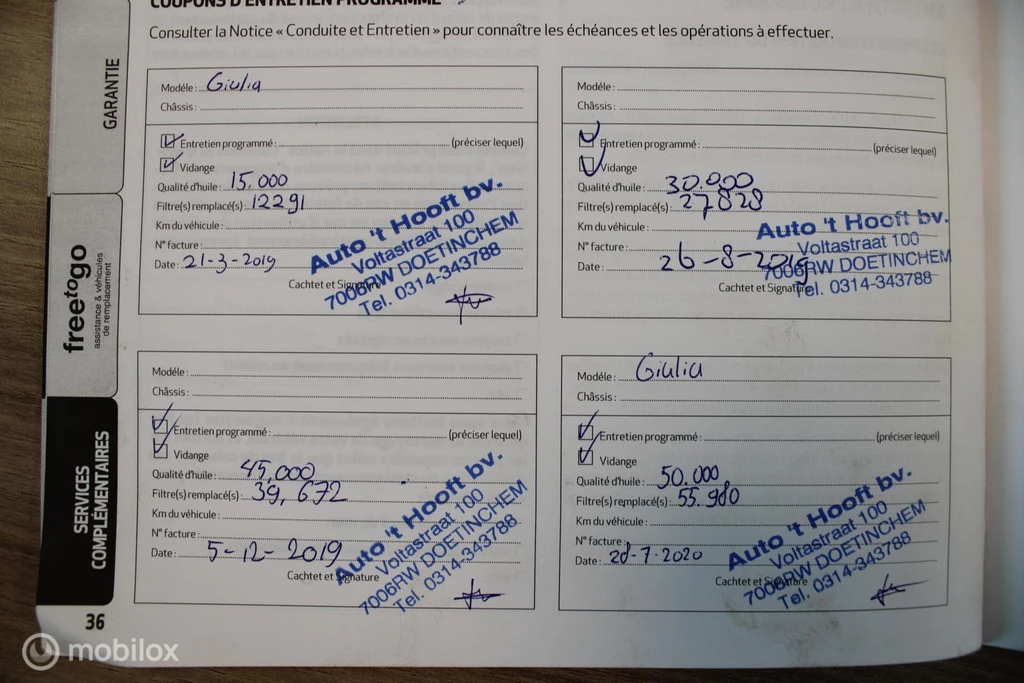 COUPONS D'ENTRETIEN PROGRAMMÉ
Consulter la Notice « Conduite et Entretien » pour connaître les échéances et les opérations à effectuer.
GARANTIE
freetogo
assistance & véhicules
de remplacement
SERVICES
COMPLÉMENTAIRES
Modéle: Giulia
Châssis:
Entretien programmé: (préciser lequel)
Vidange
Qualité d'huile: 15.000
Filtre(s) remplacé(s): 12291
Km du véhicule:
N° facture:
Date: 21-3-2019
Cachtet et Signature
Auto 't Hooft bv.
Voltastraat 100
7006RW DOETINCHEM
Tel. 0314-343788
Modéle:
Châssis:
Entretien programmé: (préciser lequel)
Vidange
Qualité d'huile: 30.000
Filtre(s) remplacé(s): 27828
Km du véhicule:
N° facture:
Date: 26-8-2019
Cachtet et Signature
Auto 't Hooft bv.
Voltastraat 100
7006RW DOETINCHEM
Tel. 0314-343788
Modéle:
Châssis:
Entretien programmé: (préciser lequel)
Vidange
Qualité d'huile: 45,000
Filtre(s) remplacé(s): 39,672
Km du véhicule:
N° facture:
Date: 5-12-2019
Cachtet et Signature
Auto 't Hooft bv.
Voltastraat 100
7006RW DOETINCHEM
Tel. 0314-343788
Modéle: Giulia
Châssis:
Entretien programmé: (préciser lequel)
Vidange
Qualité d'huile: 50.000
Filtre(s) remplacé(s): 55.980
Km du véhicule:
N° facture:
Date: 28-7-2020
Cachtet et Signature
Auto 't Hooft bv.
Voltastraat 100
7006RW DOETINCHEM
Tel. 0314-343788
36
mobilox